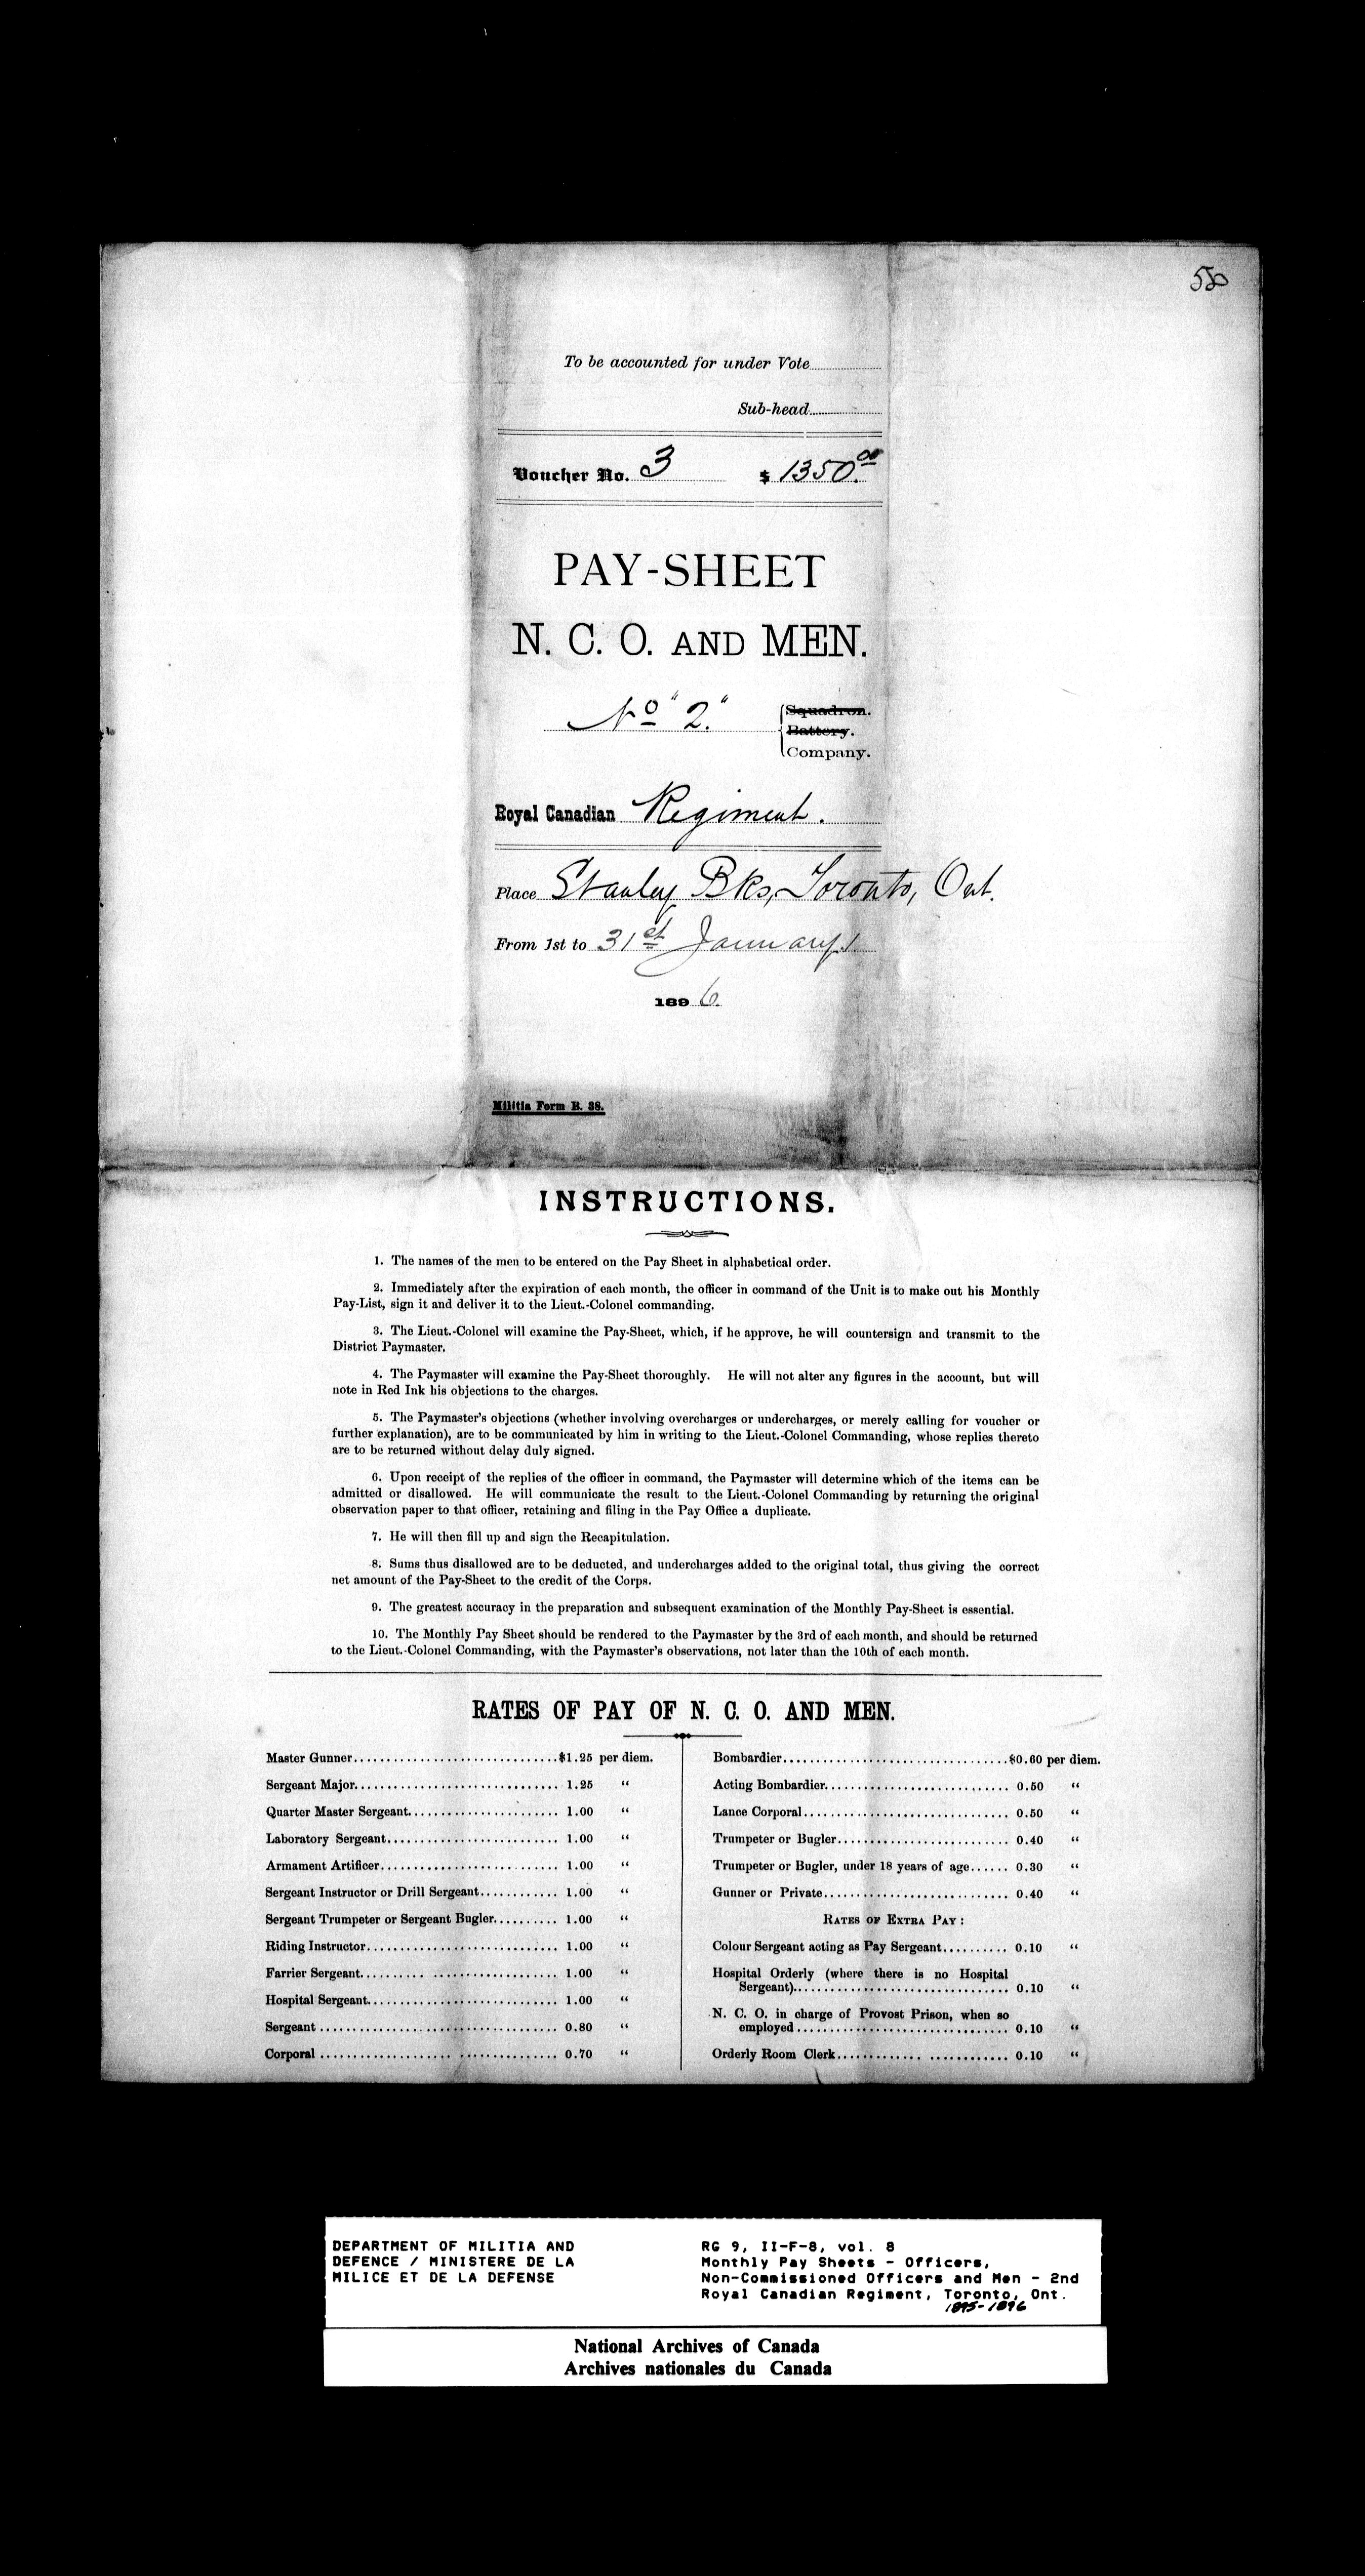 To be accounted for under Vote
Sub-head
Voucher No. 3 $ 1350.00
PAY-SHEET
N. C. O. AND MEN.
No "2."
Squadron.
Battery.
Company.
Royal Canadian Regiment.
Place Stanley Bks, Toronto, Ont.
From 1st to 31st January
1896.
Militia Form B. 38.
INSTRUCTIONS.
1. The names of the men to be entered on the Pay Sheet in alphabetical order.
2. Immediately after the expiration of each month, the officer in command of the Unit is to make out his Monthly
Pay-List, sign it and deliver it to the Lieut.-Colonel commanding.
3. The Lieut.-Colonel will examine the Pay-Sheet, which, if he approve, he will countersign and transmit to the
District Paymaster.
4. The Paymaster will examine the Pay-Sheet thoroughly. He will not alter any figures in the account, but will
note in Red Ink his objections to the charges.
5. The Paymaster's objections (whether involving overcharges or undercharges, or merely calling for voucher or
further explanation), are to be communicated by him in writing to the Lieut.-Colonel Commanding, whose replies thereto
are to be returned without delay duly signed.
6. Upon receipt of the replies of the officer in command, the Paymaster will determine which of the items can be
admitted or disallowed. He will communicate the result to the Lieut.-Colonel Commanding by returning the original
observation paper to that officer, retaining and filing in the Pay Office a duplicate.
7. He will then fill up and sign the Recapitulation.
8. Sums thus disallowed are to be deducted, and undercharges added to the original total, thus giving the correct
net amount of the Pay-Sheet to the credit of the Corps.
9. The greatest accuracy in the preparation and subsequent examination of the Monthly Pay-Sheet is essential.
10. The Monthly Pay Sheet should be rendered to the Paymaster by the 3rd of each month, and should be returned
to the Lieut.-Colonel Commanding, with the Paymaster's observations, not later than the 10th of each month.
RATES OF PAY OF N. C. O. AND MEN.
Master Gunner $1.25 per diem.
Sergeant Major 1.25 "
Quarter Master Sergeant 1.00 "
Laboratory Sergeant 1.00 "
Armament Artificer 1.00 "
Sergeant Instructor or Drill Sergeant 1.00 "
Sergeant Trumpeter or Sergeant Bugler 1.00 "
Riding Instructor 1.00 "
Farrier Sergeant 1.00 "
Hospital Sergeant 1.00 "
Sergeant 0.80 "
Corporal 0.70 "
Bombardier $0.60 per diem.
Acting Bombardier 0.50 "
Lance Corporal 0.50 "
Trumpeter or Bugler 0.40 "
Trumpeter or Bugler, under 18 years of age 0.30 "
Gunner or Private 0.40 "
RATES OF EXTRA PAY:
Colour Sergeant acting as Pay Sergeant 0.10 "
Hospital Orderly (where there is no Hospital
Sergeant) 0.10 "
N. C. O. in charge of Provost Prison, when so
employed 0.10 "
Orderly Room Clerk 0.10 "
DEPARTMENT OF MILITIA AND
DEFENCE / MINISTERE DE LA
MILICE ET DE LA DEFENSE
RG 9, II-F-8, vol. 8
Monthly Pay Sheets - Officers,
Non-Commissioned Officers and Men - 2nd
Royal Canadian Regiment, Toronto, Ont.
1895-1896
National Archives of Canada
Archives nationales du Canada